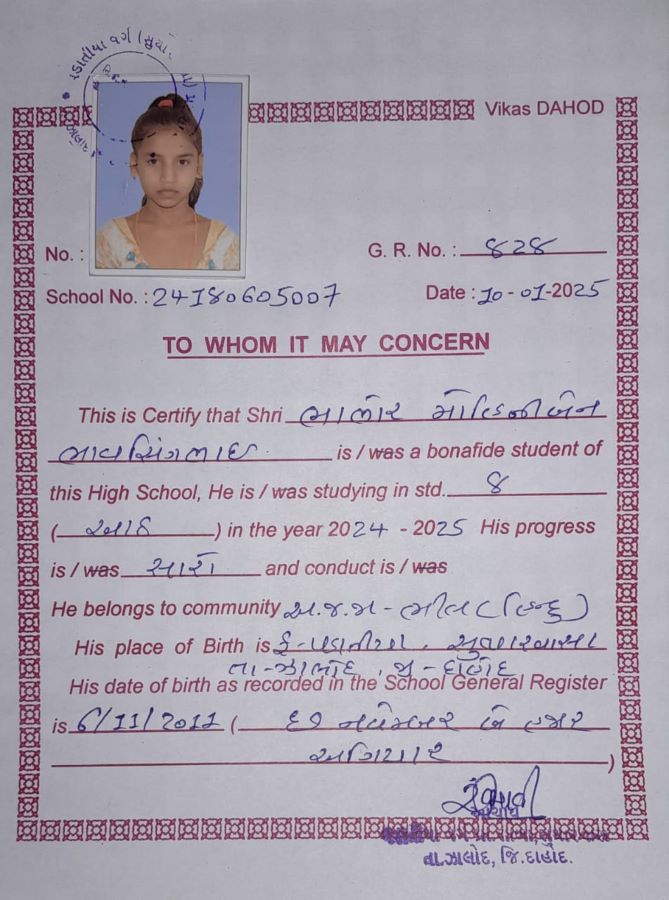 Vikas DAHOD
No. :
G. R. No. : ૪૨૪
School No. : 24180605007
Date : 10 - 01-2025
TO WHOM IT MAY CONCERN
This is Certify that Shri ભાભોર મોહિનીબેન
is / was a bonafide student of
this High School, He is / was studying in std. 8
( આઠ ) in the year 2024 - 2025 His progress
is / was સારો and conduct is / was
He belongs to community અ.જ.જા - ભીલ (હિન્દુ)
His place of Birth is
તા-ઝાલોદ, જી-દાહોદ
His date of birth as recorded in the School General Register
is 6/11/2011 ( છઠ્ઠી નવેમ્બર બે હજાર
અગિયાર )
આચાર્ય
તા.ઝાલોદ, જિ.દાહોદ.